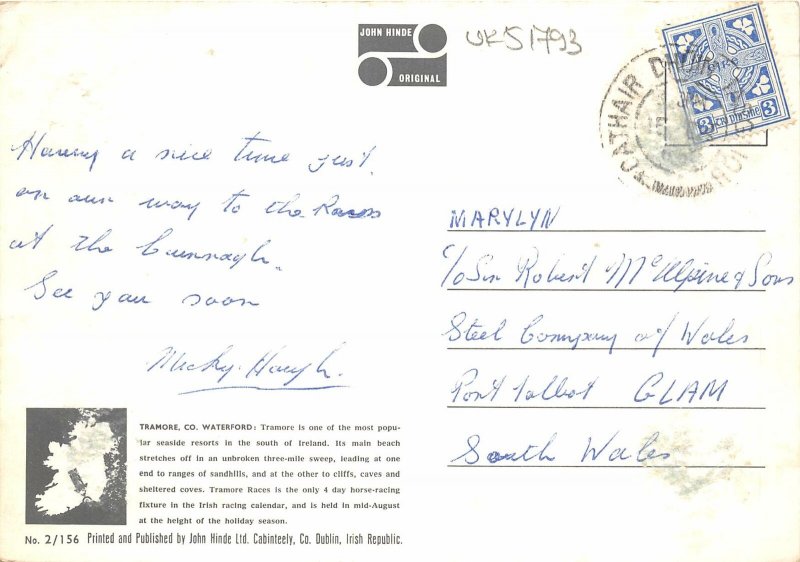 JOHN HINDE
ORIGINAL
UKS1793
3 3
CATHAIR
Having a nice time just
on our way to the Races
at the Curragh.
See you soon
Micky Haugh.
MARYLYN
C/o Sir Robert McAlpine & Sons
Steel Company of Wales
Port Talbot GLAM
South Wales
TRAMORE, CO. WATERFORD: Tramore is one of the most popu-
lar seaside resorts in the south of Ireland. Its main beach
stretches off in an unbroken three-mile sweep, leading at one
end to ranges of sandhills, and at the other to cliffs, caves and
sheltered coves. Tramore Races is the only 4 day horse-racing
fixture in the Irish racing calendar, and is held in mid-August
at the height of the holiday season.
No. 2/156 Printed and Published by John Hinde Ltd. Cabinteely, Co. Dublin, Irish Republic.